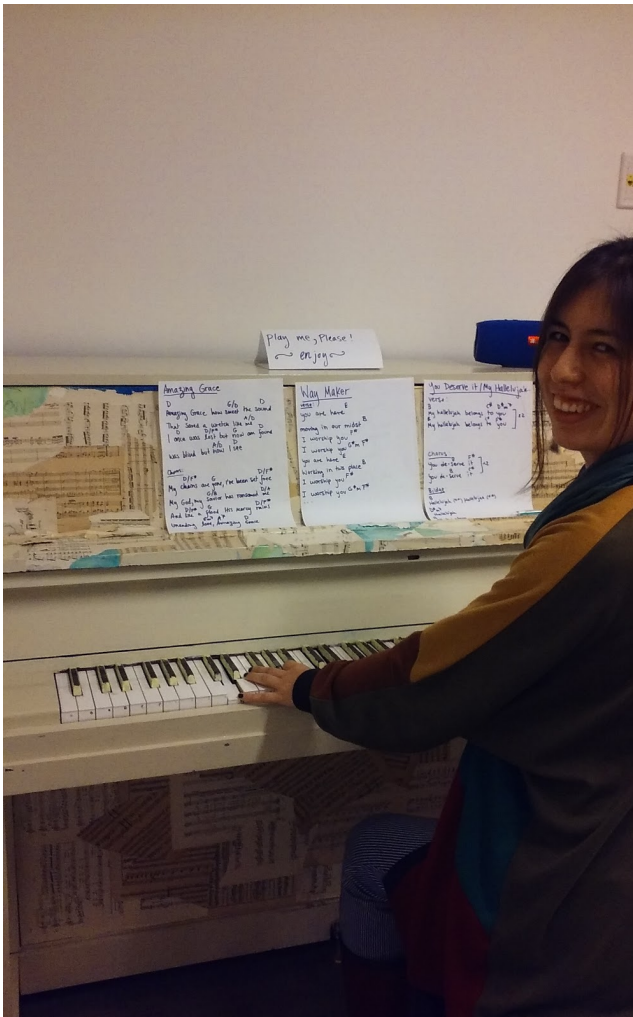 Play me, Please!
~ enjoy ~
Amazing Grace
D G/D D
Amazing Grace how sweet the sound
A/D
That saved a wretch like me
D D/F# G D
I once was lost but now am found
A/D D
was blind but now I see
Chorus:
D/F# G D/F#
My chains are gone, I've been set free
G/B D/F#
My God, my Savior has ransomed me
D/F# G
And like a flood His mercy rains
D
Unending love, Amazing Grace
Way Maker
verse
you are here
B
moving in our midst
F#
I worship you
I worship you G#m F#
you are here E
B
working in this place
F#
I worship you
I worship you G#m F#
You Deserve it / My Hallelujah
verse
B C# G#m
My hallelujah belongs to you
My hallelujah belongs to you
x2
Chorus
F#
you de-serve it
you de-serve it
x2
Bridge